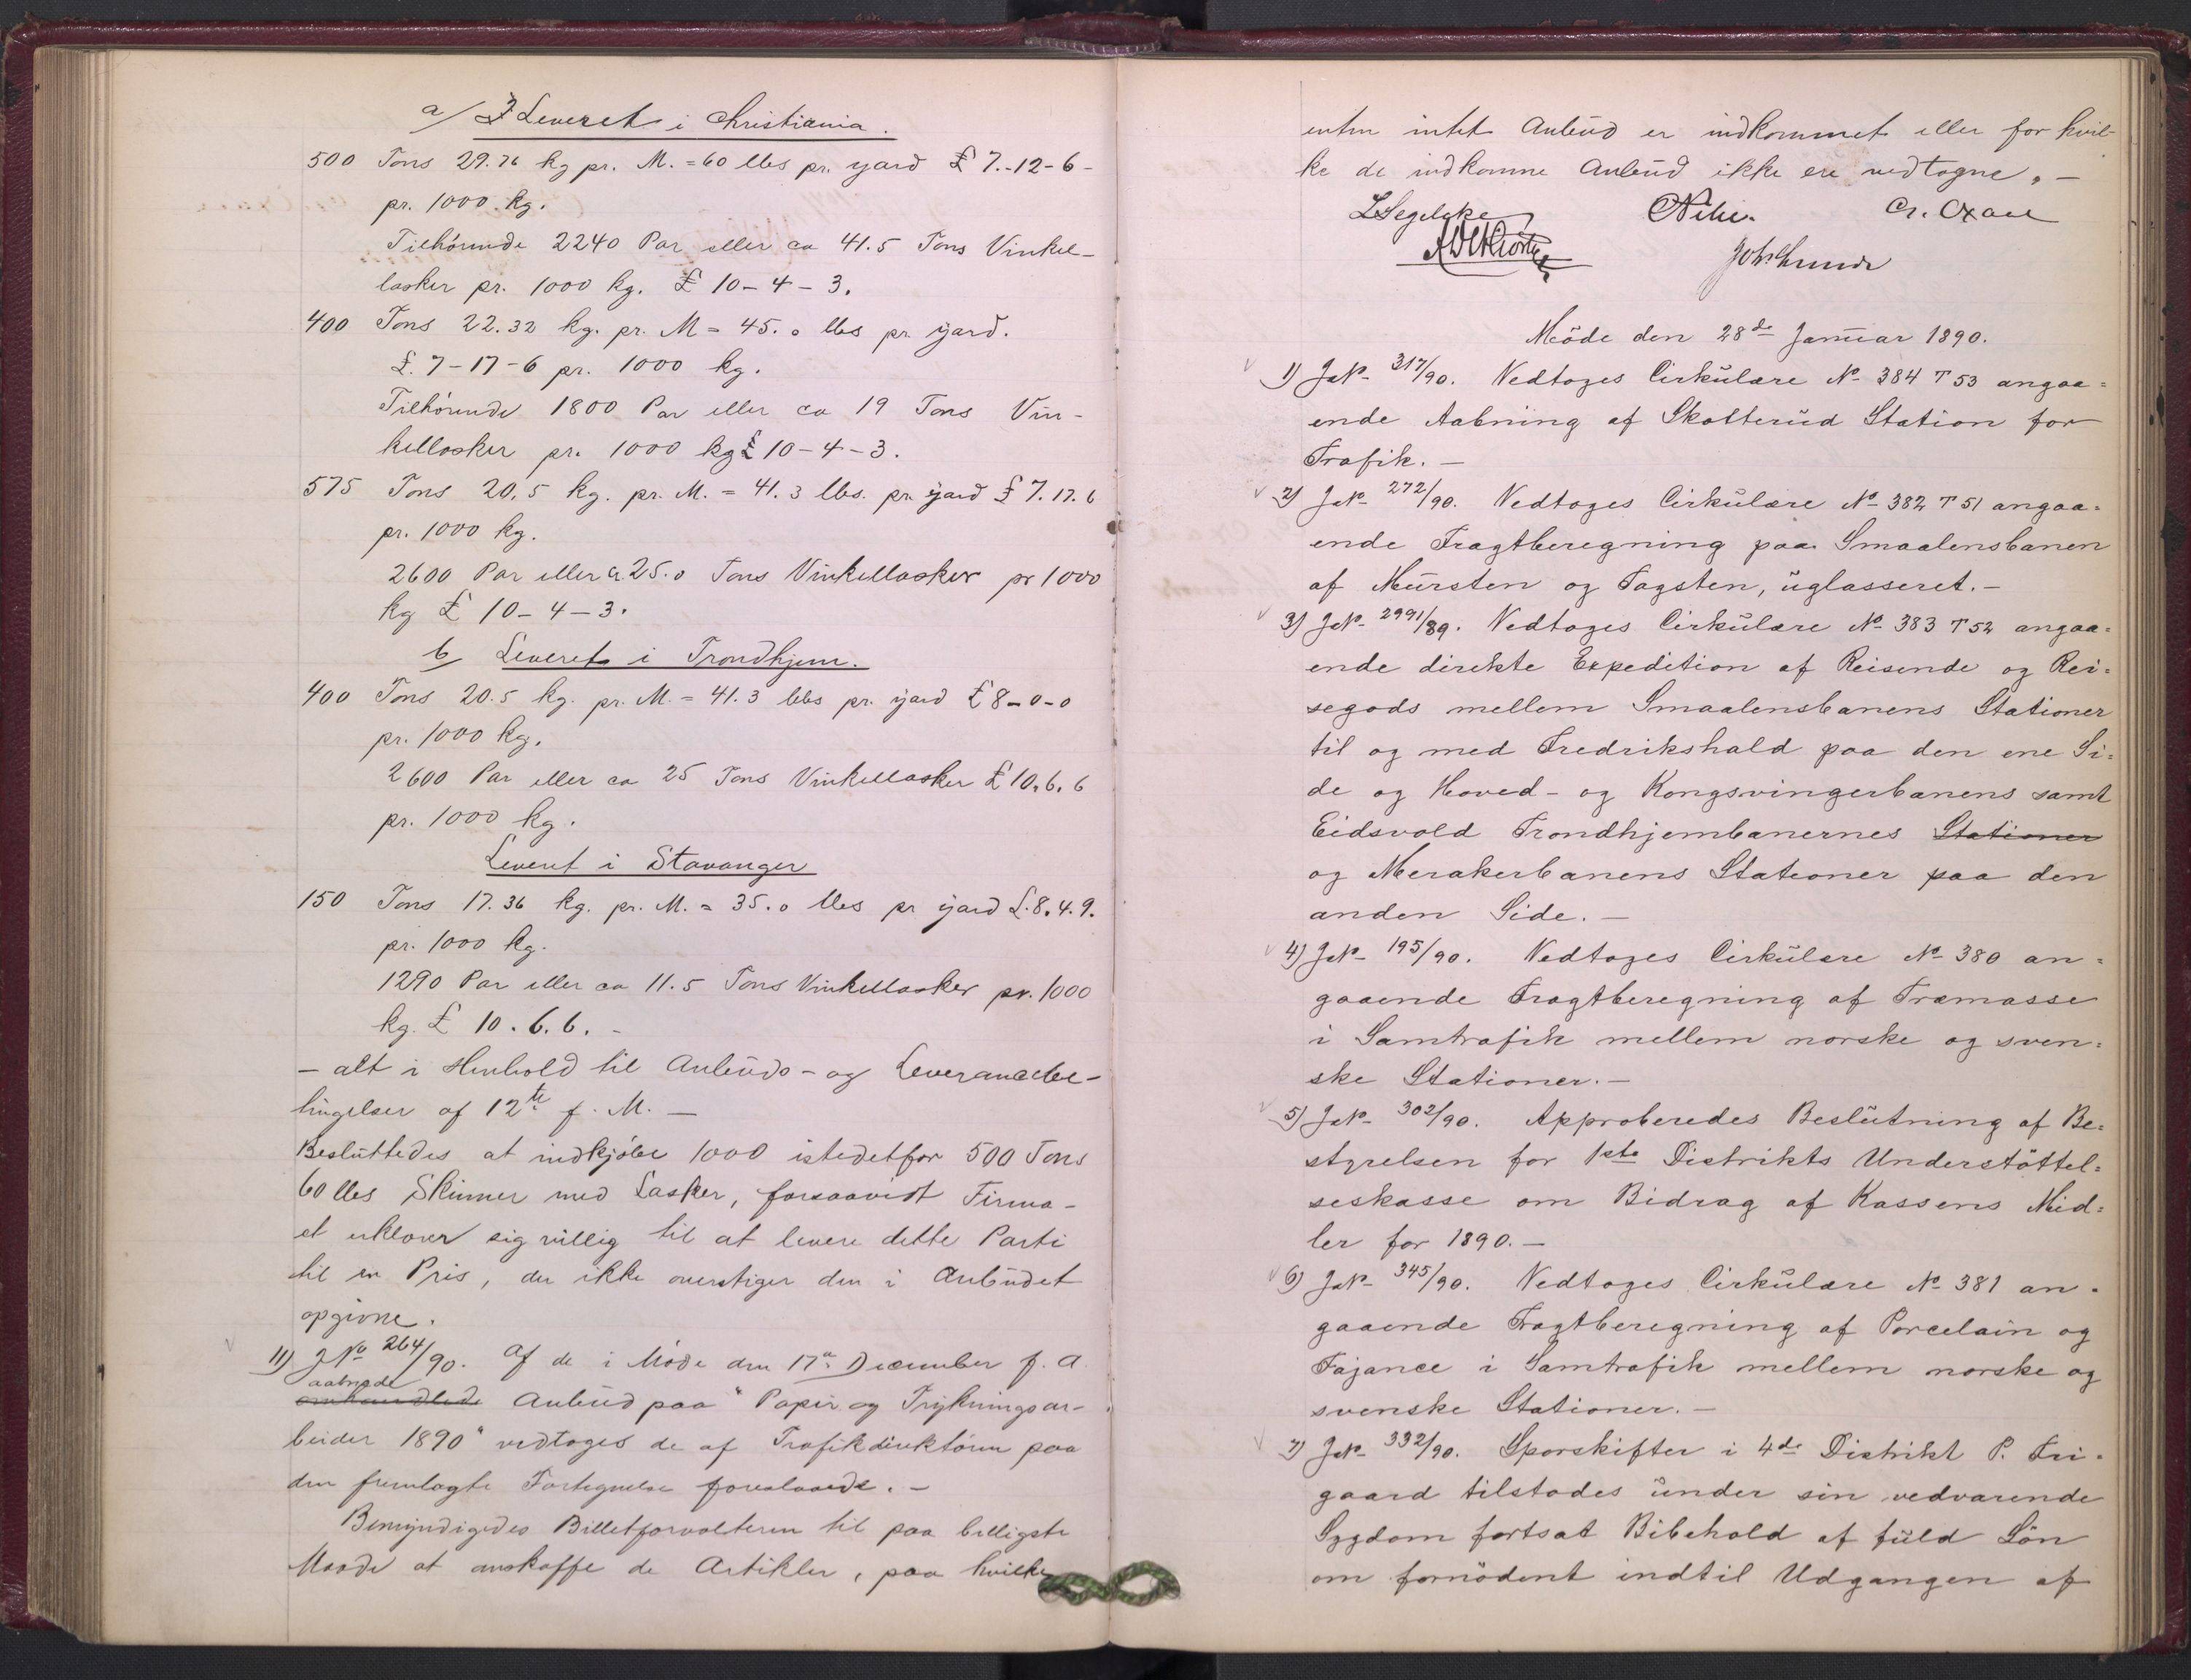 a/ Leveret i Christiania.
500 Tons 29.76 kg pr. M. = 60 lbs pr. yard £ 7.-12-6-
pr. 1000 kg.
Tilhørende 2240 Par eller ca 41.5 Tons Vinkel-
lasker pr. 1000 kg. £ 10-4-3.
400 Tons 22.32 kg. pr. M = 45.0 lbs pr. yard.
£. 7-17-6 pr. 1000 kg.
Tilhørende 1800 Par eller ca 19 Tons Vin-
kellasker pr. 1000 kg £ 10-4-3.
575 Tons 20,5 kg. pr. M. = 41.3 lbs. pr. yard £ 7.17.6
pr. 1000 kg.
2600 Par eller ca 25.0 Tons Vinkellasker pr 1000
kg £ 10-4-3.
b/ Leveret i Trondhjem.
400 Tons 20.5 kg. pr. M. = 41.3 lbs pr. yard £ 8-0-0
pr. 1000 kg.
2600 Par eller ca 25 Tons Vinkellasker £ 10.6.6
pr. 1000 kg.
Leveret i Stavanger
150 Tons 17.36 kg. pr. M. = 35.0 lbs pr yard £.8.4.9.
pr. 1000 kg.
1290 Par eller ca 11.5 Tons Vinkellasker pr. 1000
kg. £ 10.6.6. -
- alt i Henhold til Anbuds- og Leverancebe-
tingelser af 12te f. M. —
Besluttedes at indkjøbe 1000 istedetfor 500 Tons
60 lbs Skinner med Lasker, forsaavidt Firma-
et erklærer sig villig til at levere dette Parti
til en Pris, der ikke overstiger den i Anbudet
opgivne.
11) J No 264/90. Af de i Møde den 17de December f. A.
aabnede
omhandlede Anbud paa "Papir og Trykningsar-
beider 1890" vedtoges de af Trafikdirektøren paa
den fremlagte Fortegnelse foreslaaede. -
Bemyndigedes Billetforvalteren til paa billigste
Maade at anskaffe de Artikler, paa hvilke
enten intet Anbud er indkommet eller for hvil-
ke de indkomne Anbud ikke ere vedtagne. —
LSegelcke
Møde den 28de Januar 1890.
1) JNo 317/90. Vedtoges Cirkulære No 384 T 53 angaa=
ende Aabning af Skotterud Station for
Trafik. —
2) JNo 272/90. Vedtoges Cirkulære No 382 T 51 angaa=
ende Fragtberegning paa Smaalensbanen
af Mursten og Tagsten, uglasseret. —
3) JNo 2991/89. Vedtoges Cirkulære No 383 T 52 angaa=
ende direkte Expedition af Reisende og Rei=
segods mellem Smaalensbanens Stationer
til og med Fredrikshald paa den ene Si=
de og Hoved- og Kongsvingerbanens samt
Eidsvold Trondhjembanernes Stationer
og Merakerbanens Stationer paa den
anden Side. —
4) JNo 195/90. Vedtoges Cirkulære No 380 an=
gaaende Fragtberegning af Træmasse
i Samtrafik mellem norske og sven=
ske Stationer. —
5) JNo 302/90. Approberedes Beslutning af Be=
styrelsen for 1ste Distrikts Understøttel=
seskasse om Bidrag af Kassens Mid=
ler for 1890. —
6) JNo 345/90. Vedtoges Cirkulære No 381 an=
gaaende Fragtberegning af Porcelain og
Fajance i Samtrafik mellem norske og
svenske Stationer. —
7) JNo 332/90. Sporskifter i 4de Distrikt P. Fri=
gaard tilstodes under sin vedvarende
Sygdom fortsat Bibehold af fuld Løn
om fornødent indtil Udgangen af